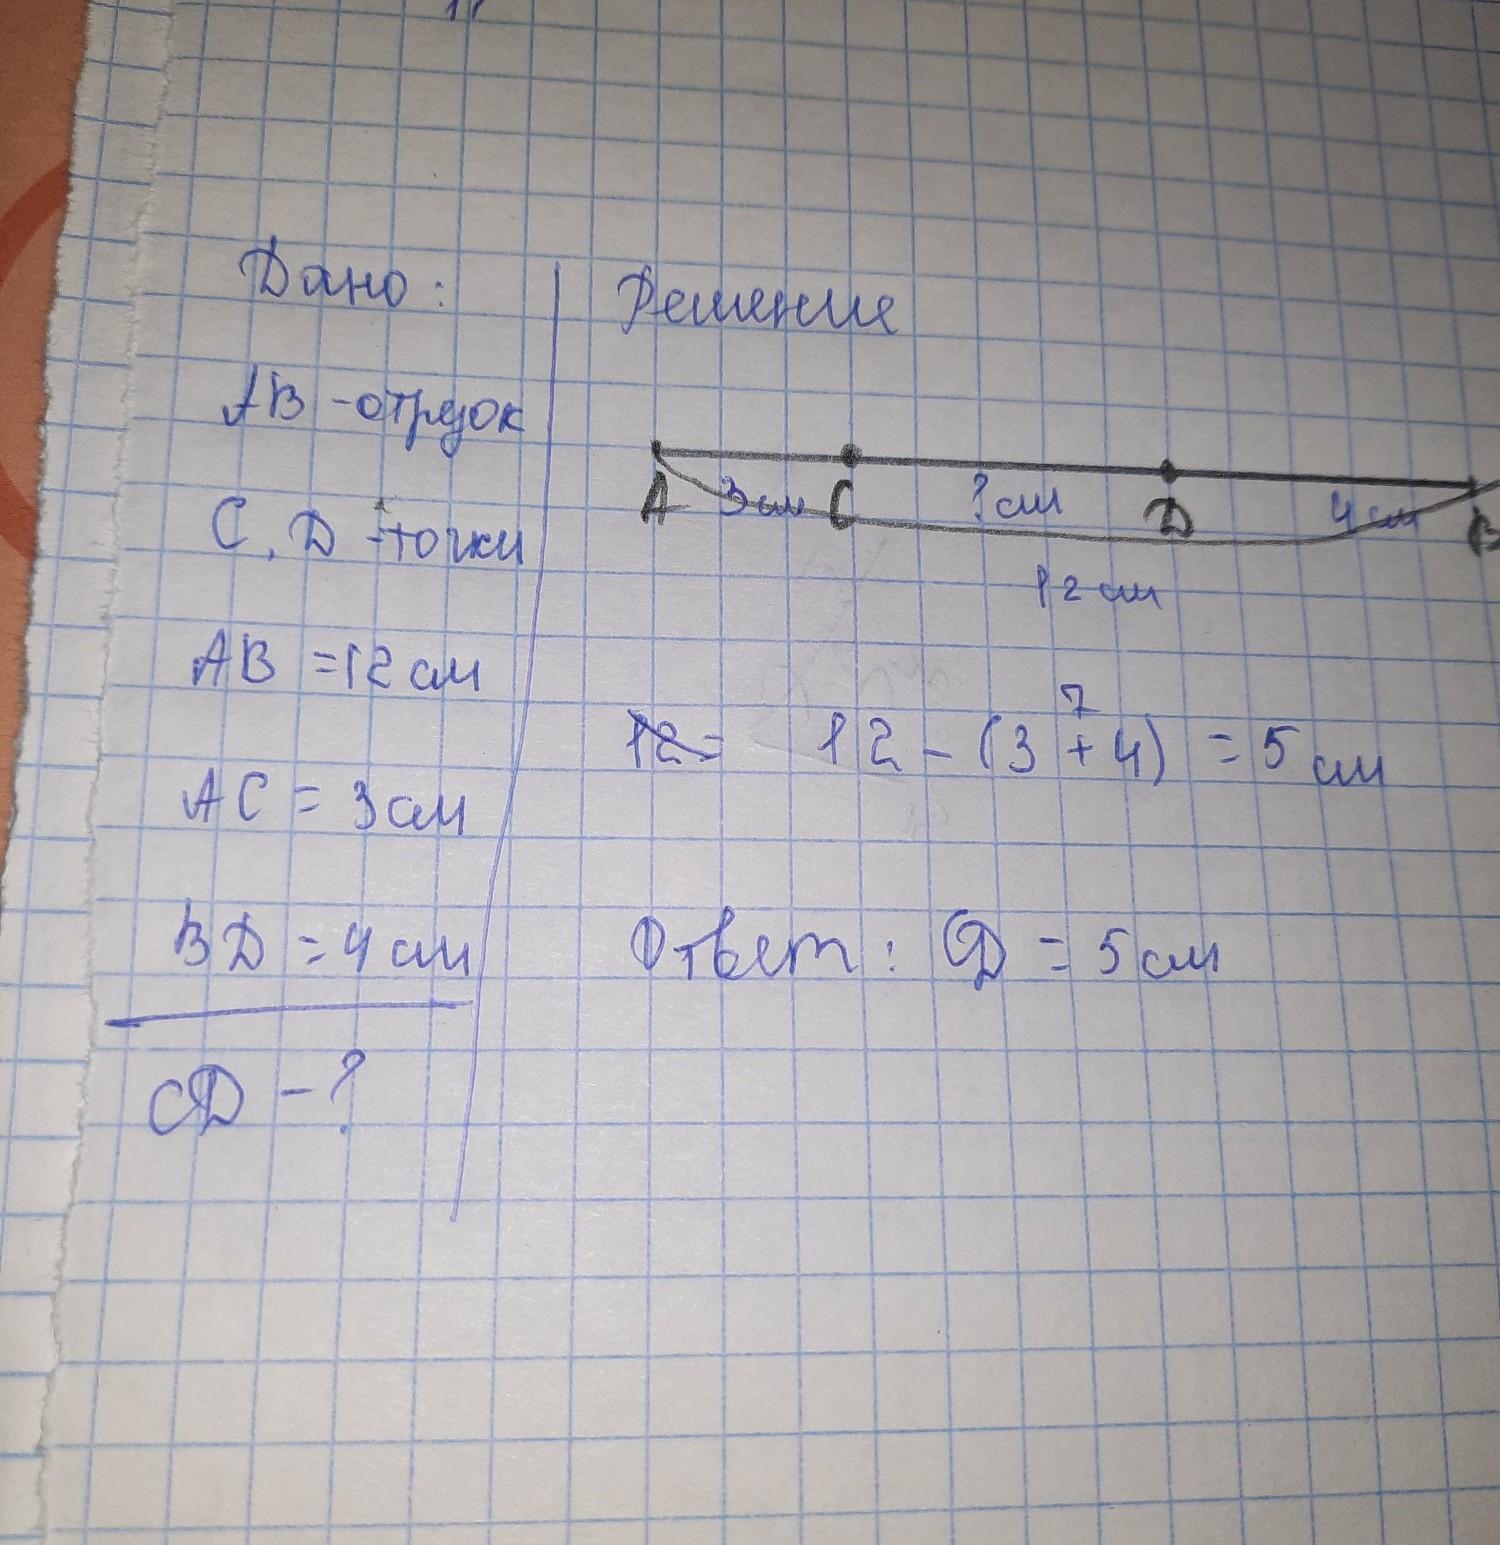 Дано:
АВ - отрзок
С, D - точки
АВ = 12 см
АС = 3 см
ВD = 4 см
СD - ?
Решение
А 3 см С ? см D 4 см В
12 см
7
12 = 12 - (3 + 4) = 5 см
Ответ: СD = 5 см